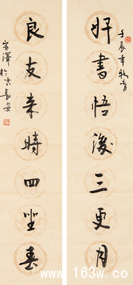 好書悟後三更月
良友來時四坐春
壬辰年秋月
於古長安
www.163w.com